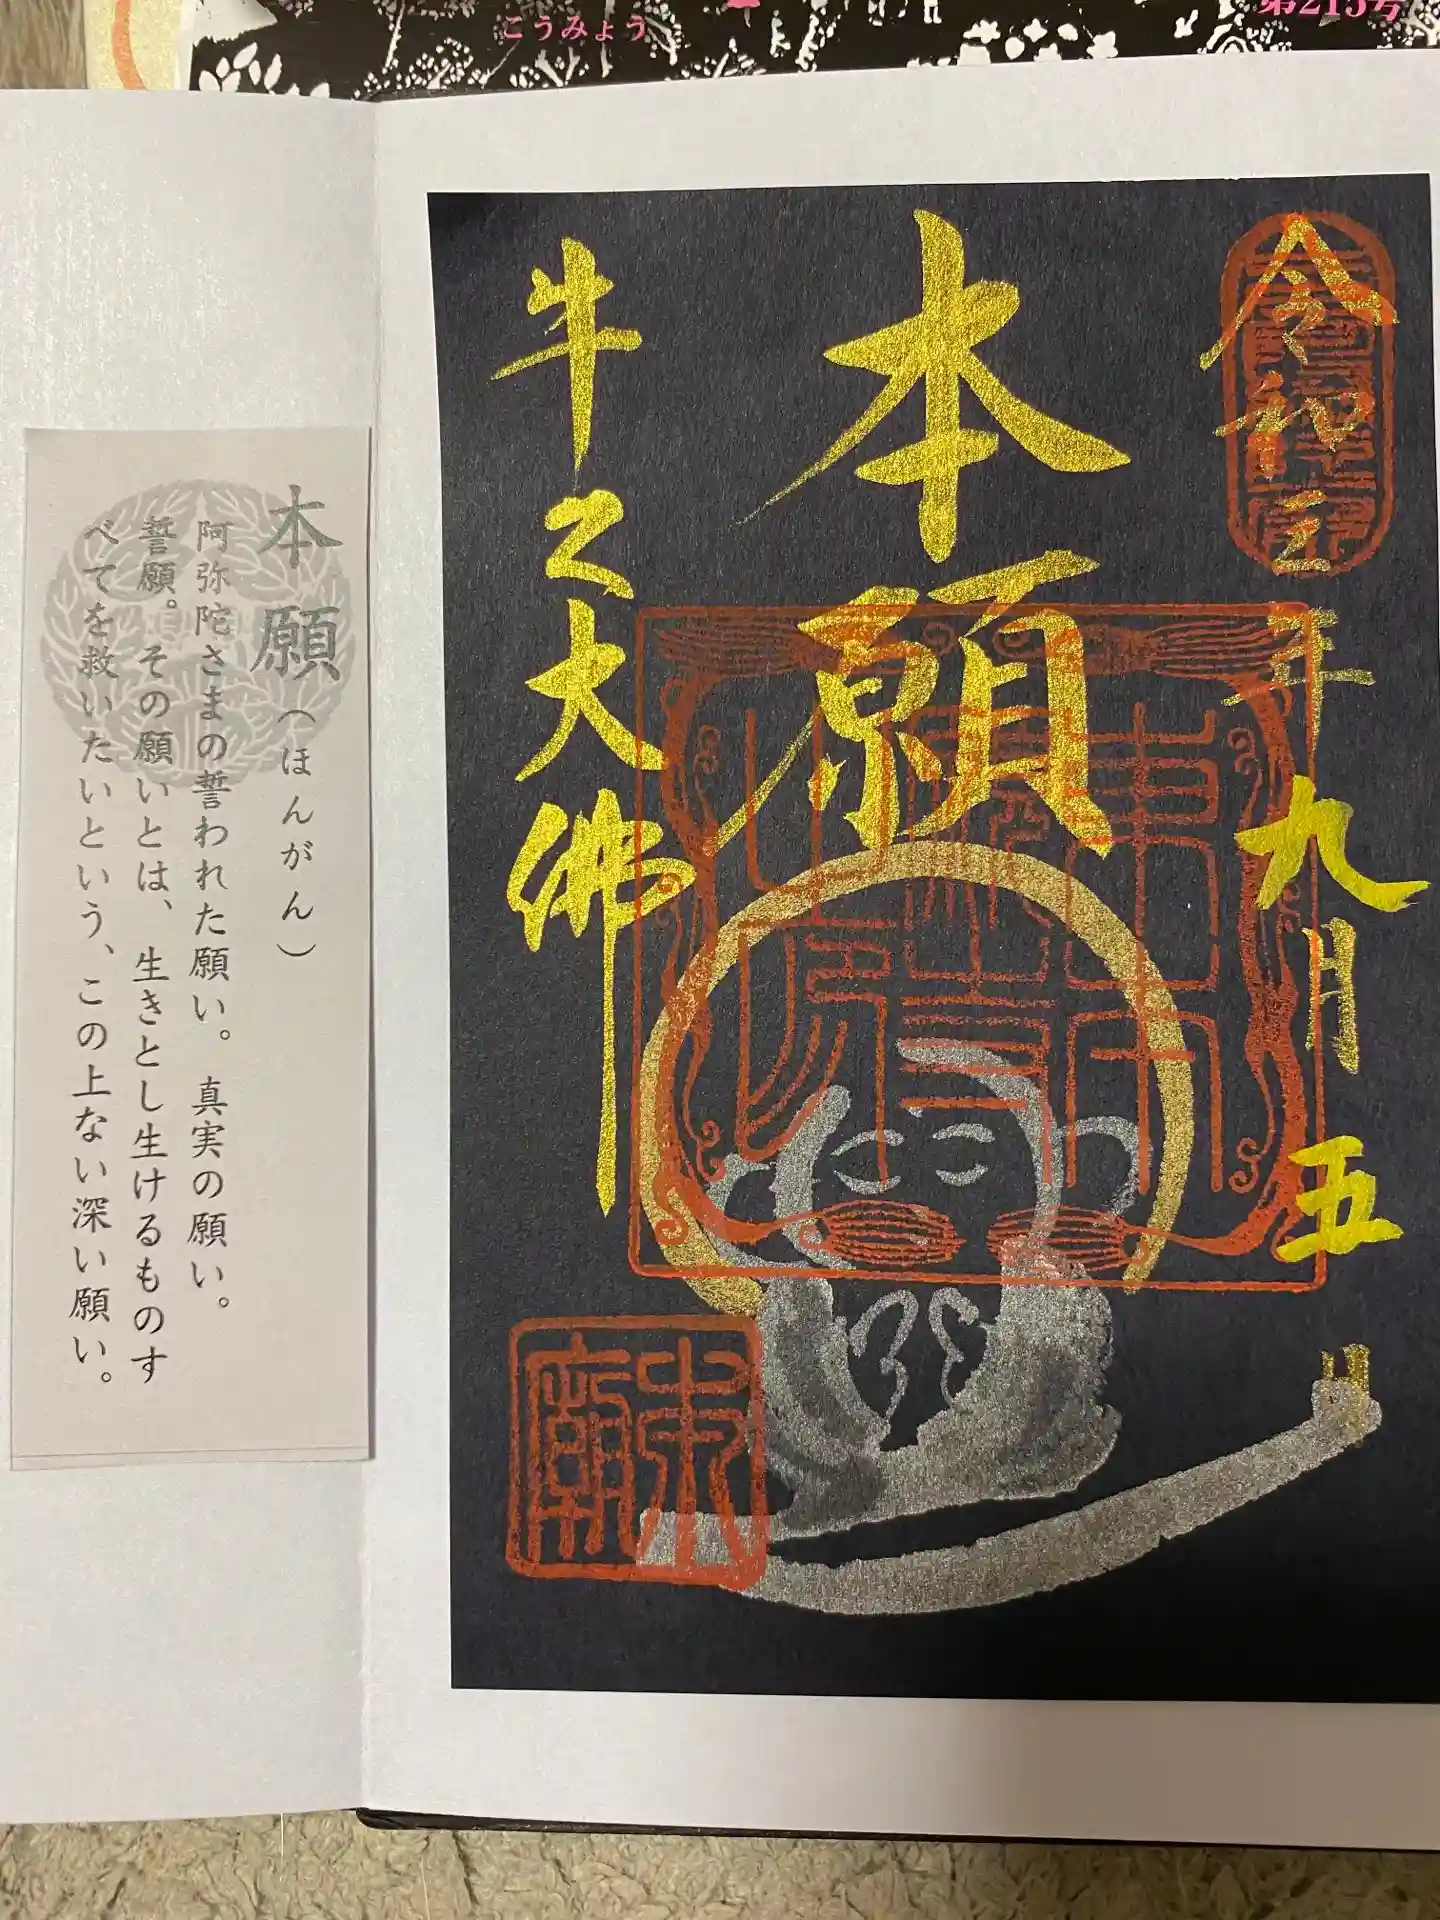 こうみょう
令和三年九月五日
本願
牛久大佛
本願（ほんがん）
阿弥陀さまの誓われた願い。真実の願い。
誓願。その願いとは、生きとし生けるものす
べてを救いたいという、この上ない深い願い。